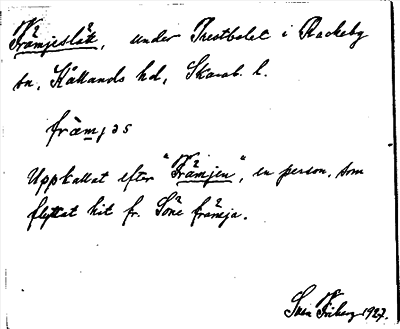 Främjeslåt, under Prestbolet i Rackeby
sn, Kållands hd, Skarab. l.
främjəs
Uppkallat efter "Främjen", en person, som
flyttat hit fr. Söne främja.
Sven Friberg 1927.